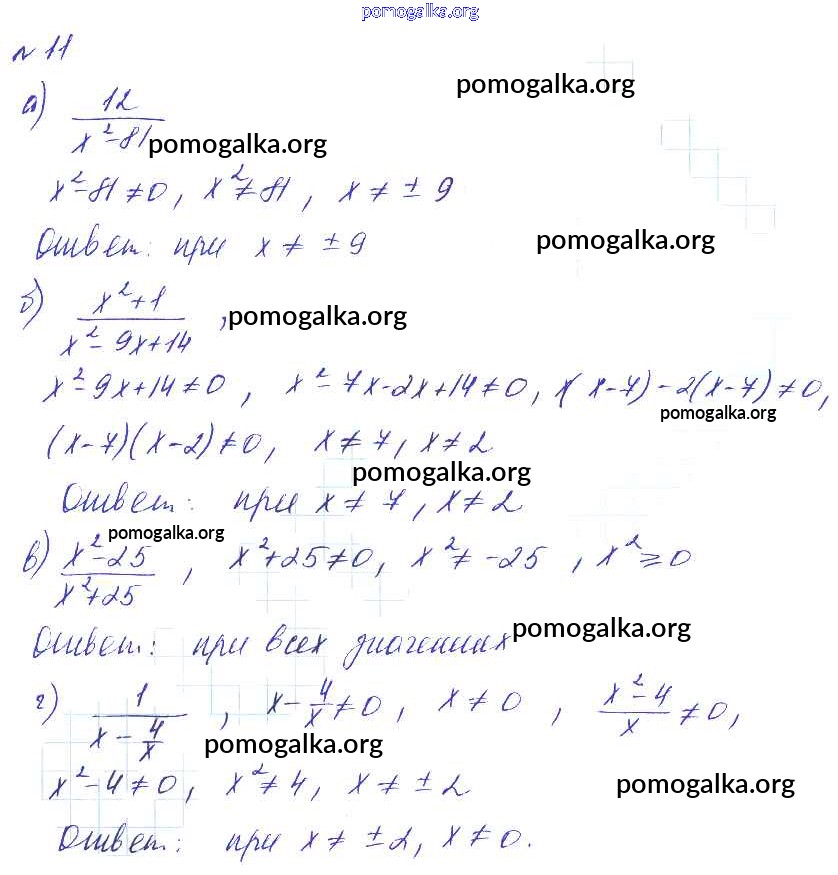 pomogalka.org
№ 11
pomogalka.org
а) 12/(x²-81) pomogalka.org
x²-81≠0, x²≠81, x≠±9
Ответ: при x≠±9 pomogalka.org
б) (x²+1)/(x²-9x+14), pomogalka.org
x²-9x+14≠0, x²-7x-2x+14≠0, x(x-7)-2(x-7)≠0,
pomogalka.org
(x-7)(x-2)≠0, x≠7, x≠2
pomogalka.org
Ответ: при x≠7, x≠2
pomogalka.org
в) (x²-25)/(x²+25), x²+25≠0, x²≠-25, x²≥0
Ответ: при всех значениях pomogalka.org
г) 1/(x-4/x), x-4/x≠0, x≠0, (x²-4)/x≠0,
pomogalka.org
x²-4≠0, x²≠4, x≠±2 pomogalka.org
Ответ: при x≠±2, x≠0.